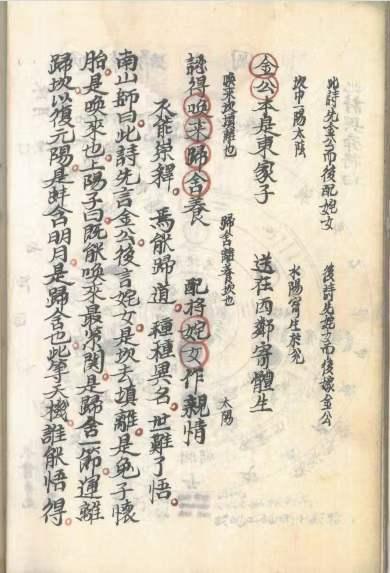 此詩先金公而後配姹女 後詩先姹女而後懷金公
坎中一陽太陰 水陽寄生於兌
金公本是東家子 送在西鄰寄體生
喚来坎填離也 歸舍離養坎也 太陽
認得喚来歸舍養 配将姹女作親情
不能崇釋。焉能歸道。種種異名。世難了悟。
南山師曰此詩先言金公後言姹女是坎去填離是兔子懷
胎是喚来也上陽子曰既能喚来最緊関是歸舍一節運離
歸坎以復元陽是蚌含明月是歸舍也此等天機誰能悟得